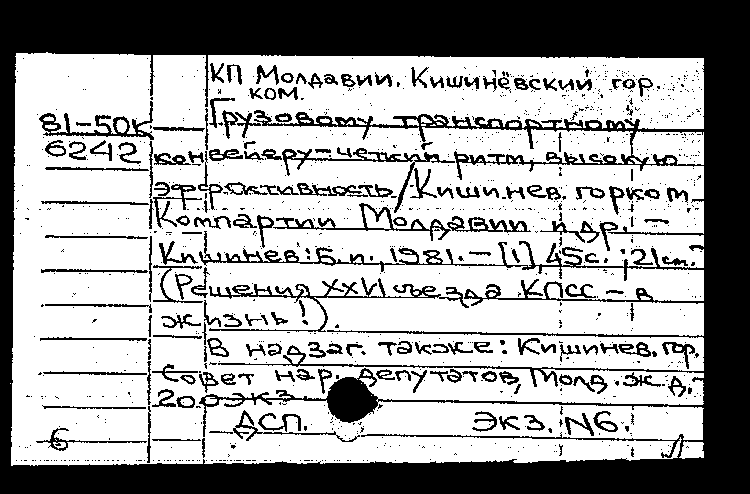 КП Молдавии. Кишинёвский гор.
ком.
81-50К Грузовому транспортному
6242 конвейеру - четкий ритм, высокую
эффективность / Кишинев. горком
Компартии Молдавии и др. -
Кишинев: Б. и., 1981. - [1], 45с.; 21см. -
(Решения XXVI съезда КПСС - в
жизнь!).
В надзаг. также: Кишинев. гор.
Совет нар. депутатов, Молд. ж. д. -
200экз
ДСП. экз. N6.
6